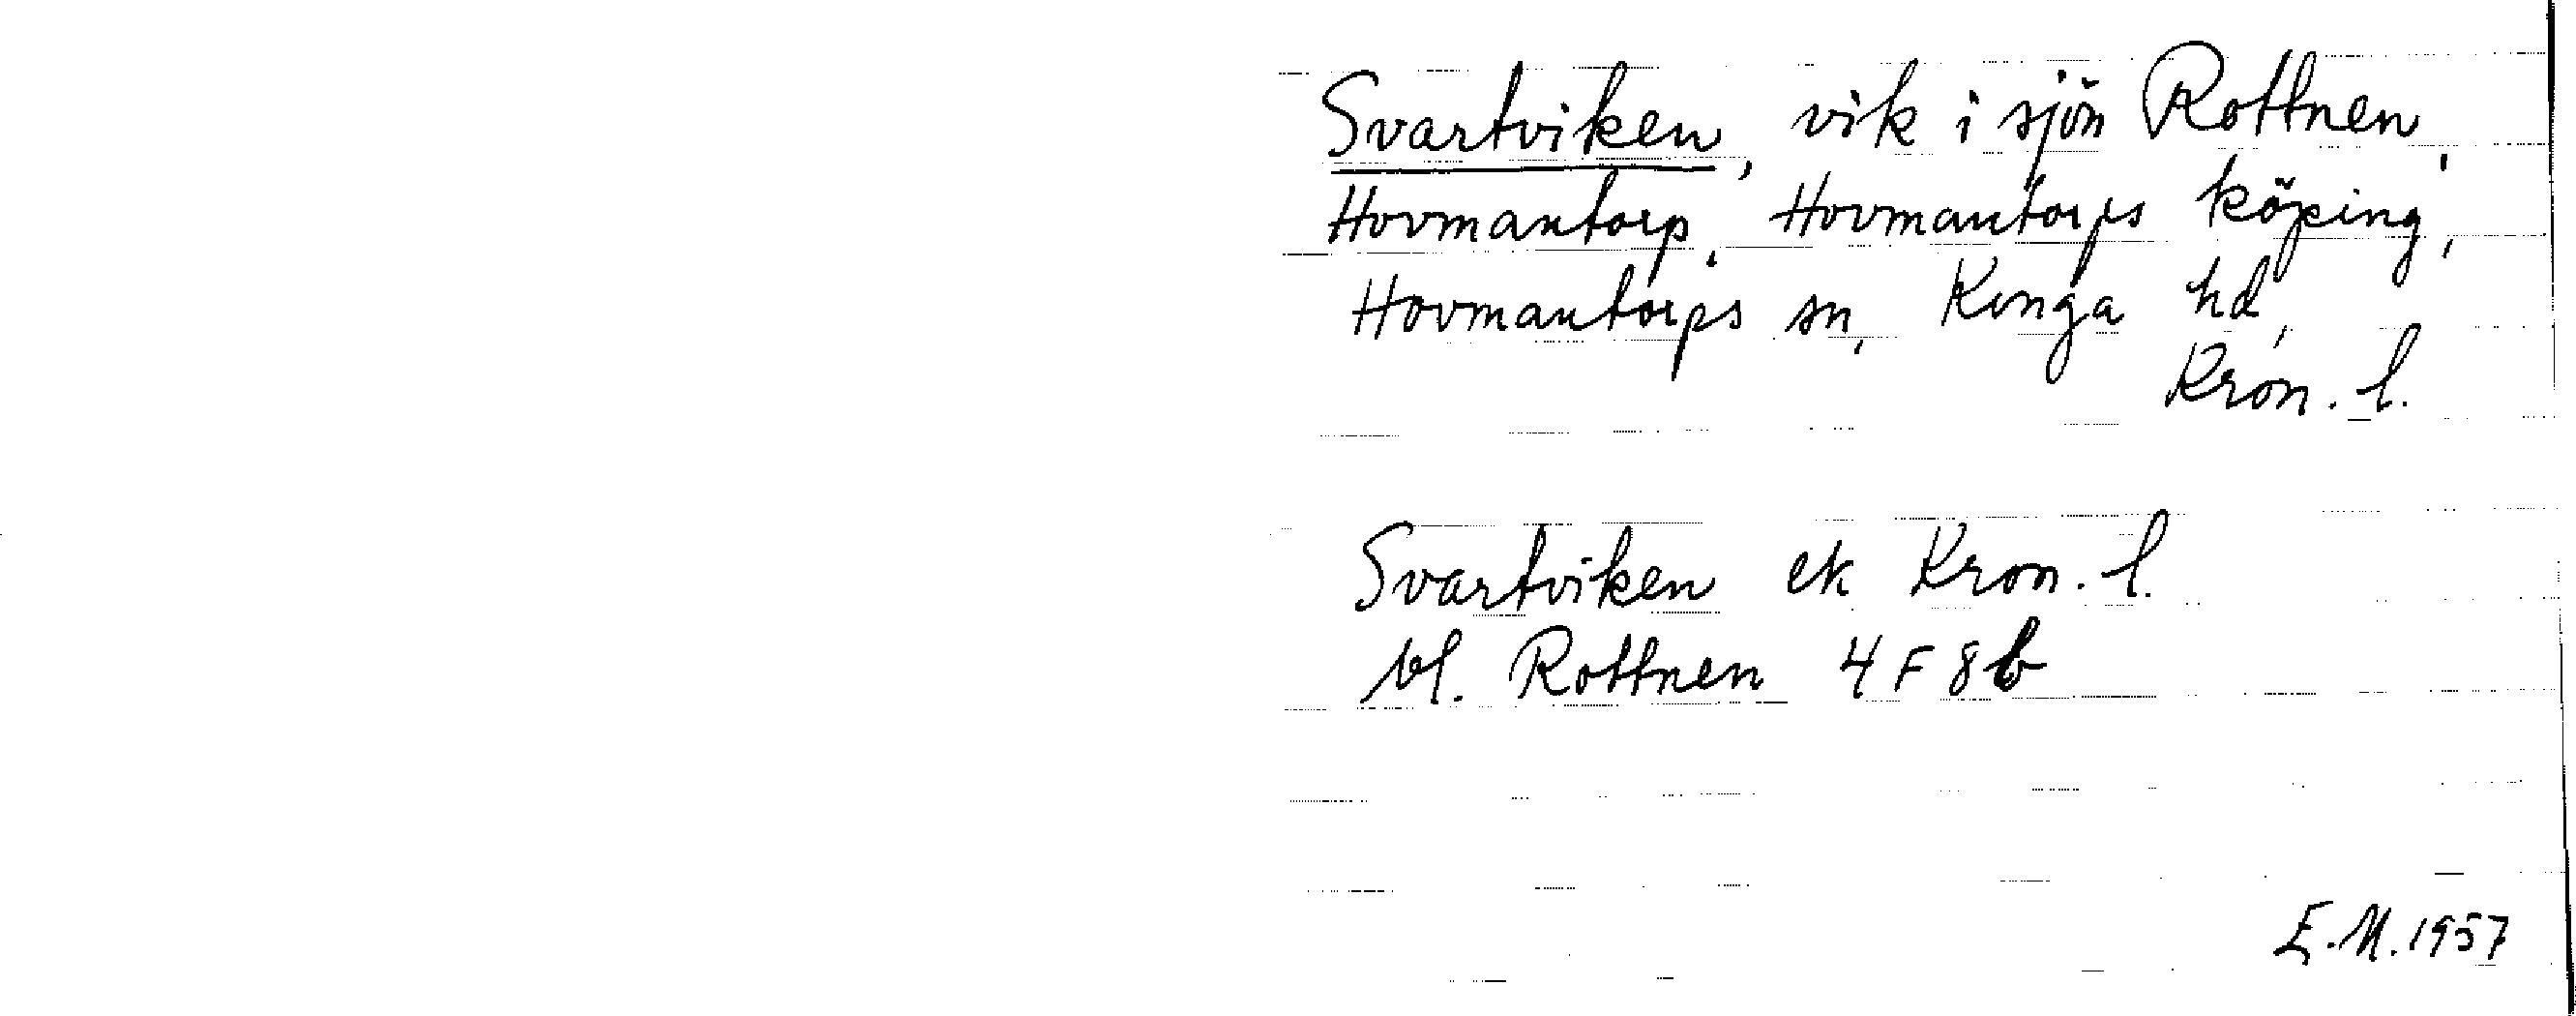 Svartviken, vik i sjön Rottnen,
Hovmantorp, Hovmantorps köping,
Hovmantorps sn, Konga hd,
Kron. l.
Svartviken ek Kron. l.
bl. Rottnen 4 F 8 b
E.M. 1957